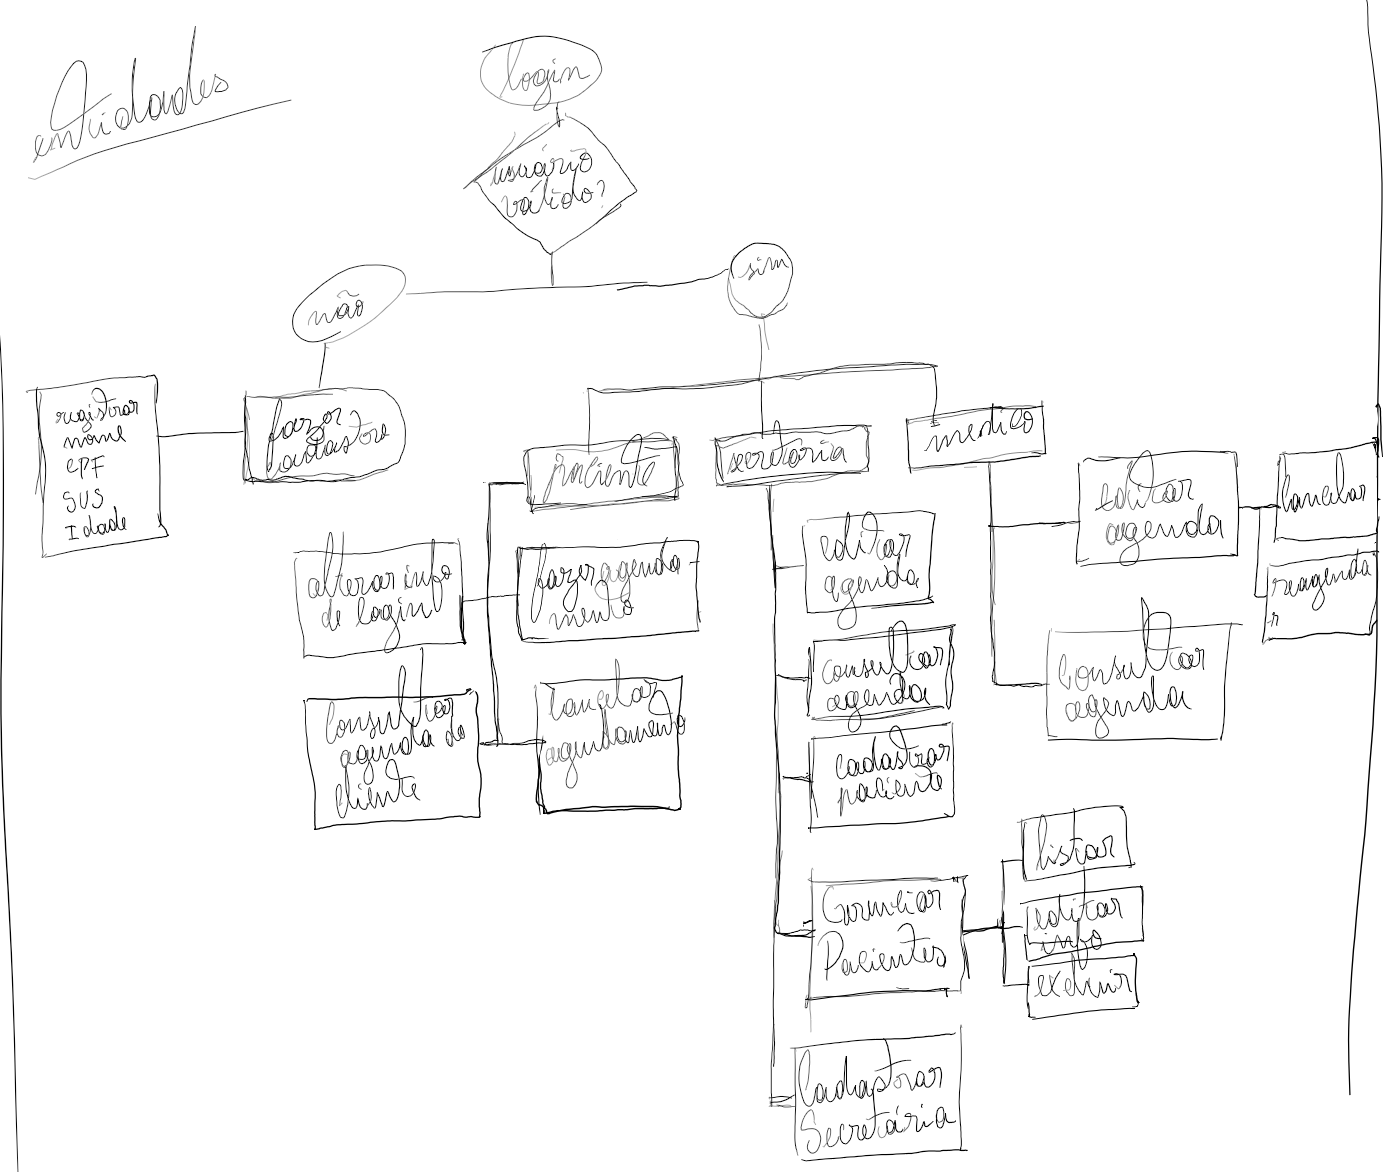 entidades
login
usuário
válido?
não
sim
registrar
nome
CPF
SUS
Idade
fazer
cadastro
paciente
secretaria
medico
alterar info
de login
fazer agenda-
mento
consultar
agenda do
cliente
cancelar
agendamento
editar
agenda
consultar
agenda
cadastrar
paciente
Gerenciar
Pacientes
listar
editar
info
excluir
Cadastrar
Secretária
editar
agenda
cancelar
reagenda
r
consultar
agenda